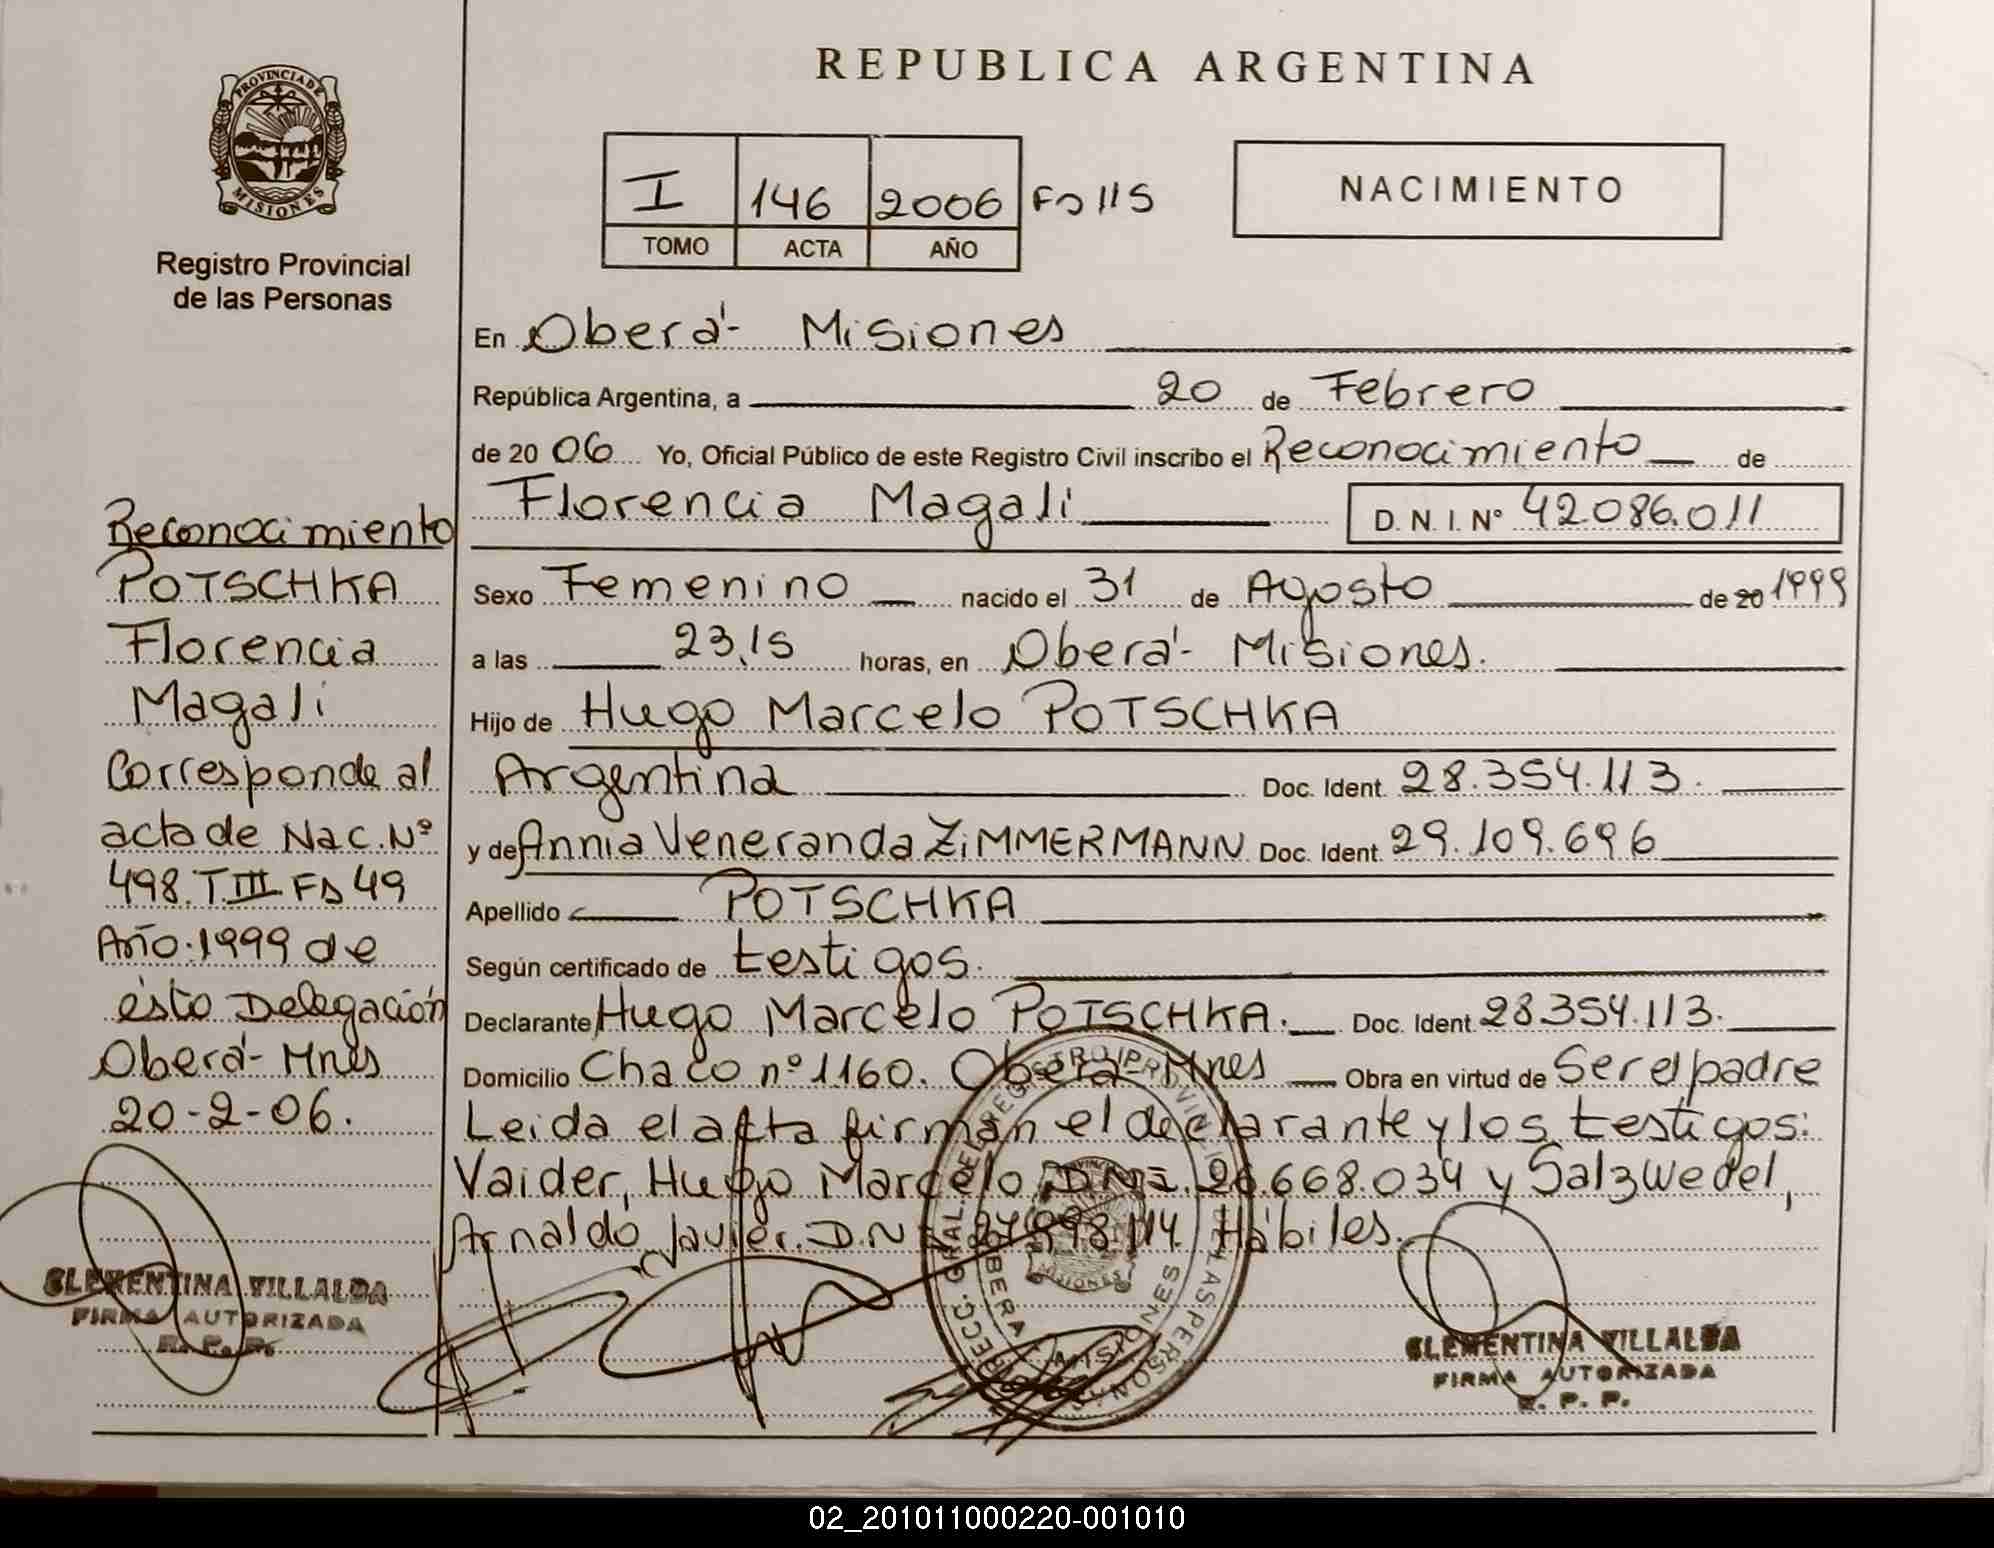 REPUBLICA ARGENTINA
PROVINCIA DE MISIONES
Registro Provincial
de las Personas
I 146 2006 Fs 115
TOMO ACTA AÑO
NACIMIENTO
En Oberá - Misiones
República Argentina, a 20 de Febrero
de 20 06 Yo, Oficial Público de este Registro Civil inscribo el Reconocimiento de
Florencia Magali D. N. I. N° 42.086.011
Sexo Femenino nacido el 31 de Agosto de 20 1999
a las 23,15 horas, en Oberá - Misiones.
Hijo de Hugo Marcelo POTSCHKA
Argentina Doc. Ident. 28.354.113.
y de Annia Veneranda ZiMMERMANN Doc. Ident. 29.109.696
Apellido POTSCHKA
Según certificado de testigos.
Declarante Hugo Marcelo POTSCHKA. Doc. Ident. 28.354.113.
Domicilio Chaco nº 1160. Oberá - Mnes Obra en virtud de Ser el padre
Leida el acta firman el declarante y los testigos:
Vaider, Hugo Marcelo D.N.I. 26.668.034 y Salzwedel,
Arnaldo Javier. D.N.I. Hábiles.
Reconocimiento
POTSCHKA
Florencia
Magali
Corresponde al
acta de Nac. Nº
498. T. III Fs 49
Año: 1999 de
ésto Delegación
Oberá - Mnes
20-2-06.
CLEMENTINA VILLALBA
FIRMA AUTORIZADA
R. P. P.
CLEMENTINA VILLALBA
FIRMA AUTORIZADA
R. P. P.
02_201011000220-001010